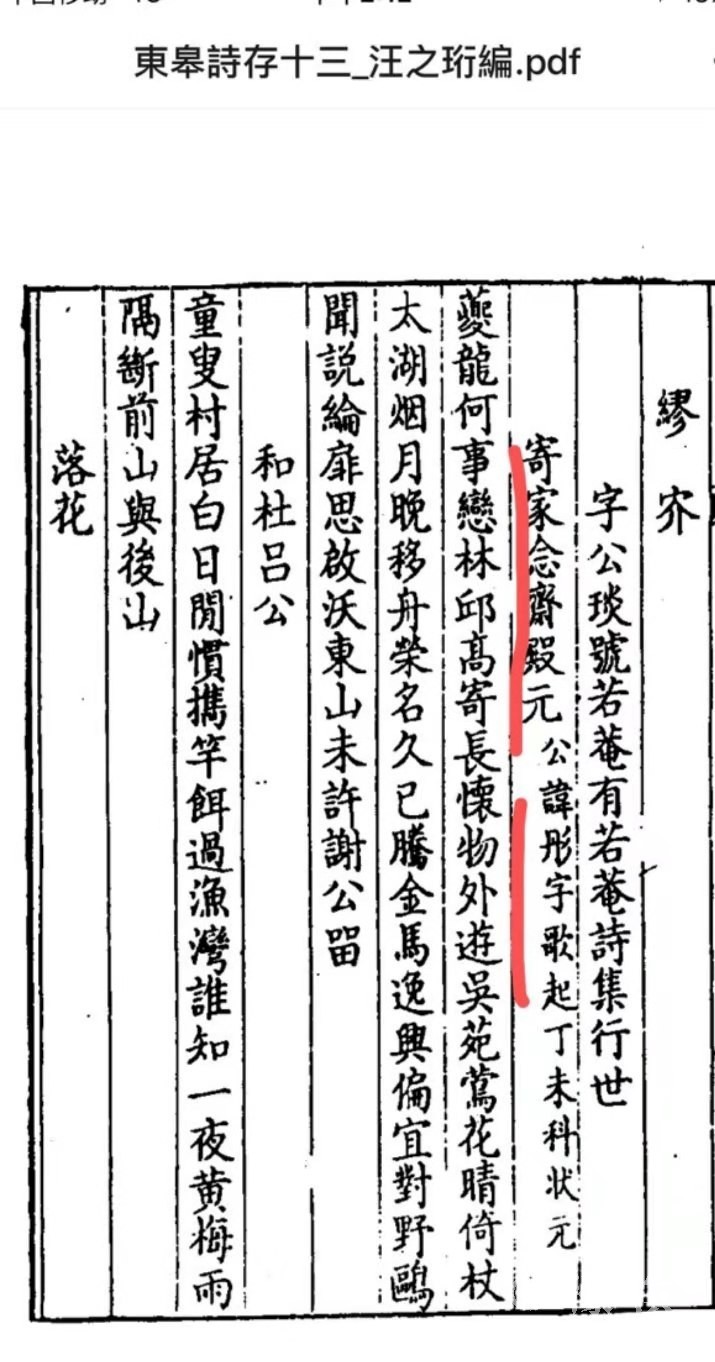 東皋詩存十三_汪之珩編.pdf
繆　夰
字公琰號若菴有若菴詩集行世
寄家念齋殿元公諱彤字歌起丁未科狀元
夔龍何事戀林邱高寄長懷物外遊吳苑鶯花晴倚杖
太湖烟月晚移舟榮名久已騰金馬逸興偏宜對野鷗
聞説綸扉思啟沃東山未許謝公畱
和杜呂公
童叟村居白日閒慣攜竿餌過漁灣誰知一夜黄梅雨
隔斷前山與後山
落花